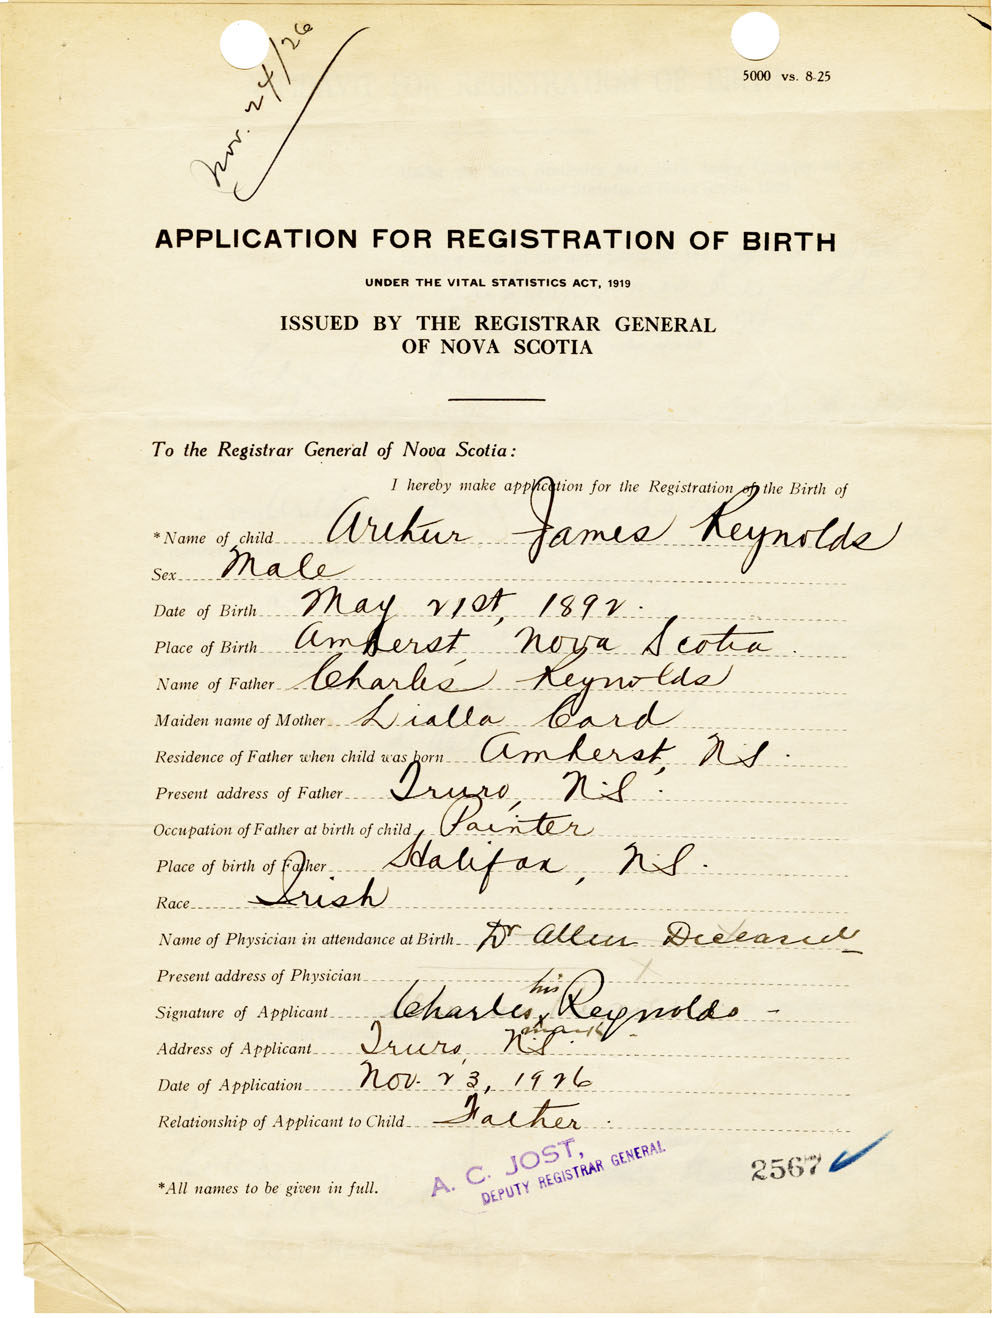 Nov. 24/26
5000 vs. 8-25
APPLICATION FOR REGISTRATION OF BIRTH
UNDER THE VITAL STATISTICS ACT, 1919
ISSUED BY THE REGISTRAR GENERAL
OF NOVA SCOTIA
To the Registrar General of Nova Scotia:
I hereby make application for the Registration of the Birth of
*Name of child Arthur James Reynolds
Sex Male
Date of Birth May 21st, 1892.
Place of Birth Amherst, Nova Scotia.
Name of Father Charles Reynolds
Maiden name of Mother Lialla Card
Residence of Father when child was born Amherst, N.S.
Present address of Father Truro, N.S.
Occupation of Father at birth of child Painter
Place of birth of Father Halifax, N.S.
Race Irish
Name of Physician in attendance at Birth Dr Allen Deceased
Present address of Physician
his
Signature of Applicant Charles x Reynolds
mark
Address of Applicant Truro, N.S.
Date of Application Nov. 23, 1926
Relationship of Applicant to Child Father.
A. C. JOST,
DEPUTY REGISTRAR GENERAL
2567
*All names to be given in full.